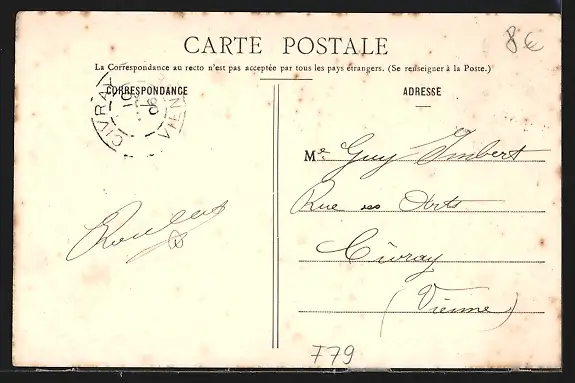 8€
CARTE POSTALE
La Correspondance au recto n'est pas acceptée par tous les pays étrangers. (Se renseigner à la Poste.)
CORRESPONDANCE
ADRESSE
CIVRAY
VIEN
Me Guy Imbert
Rue des Arts
Civray
(Vienne)
779